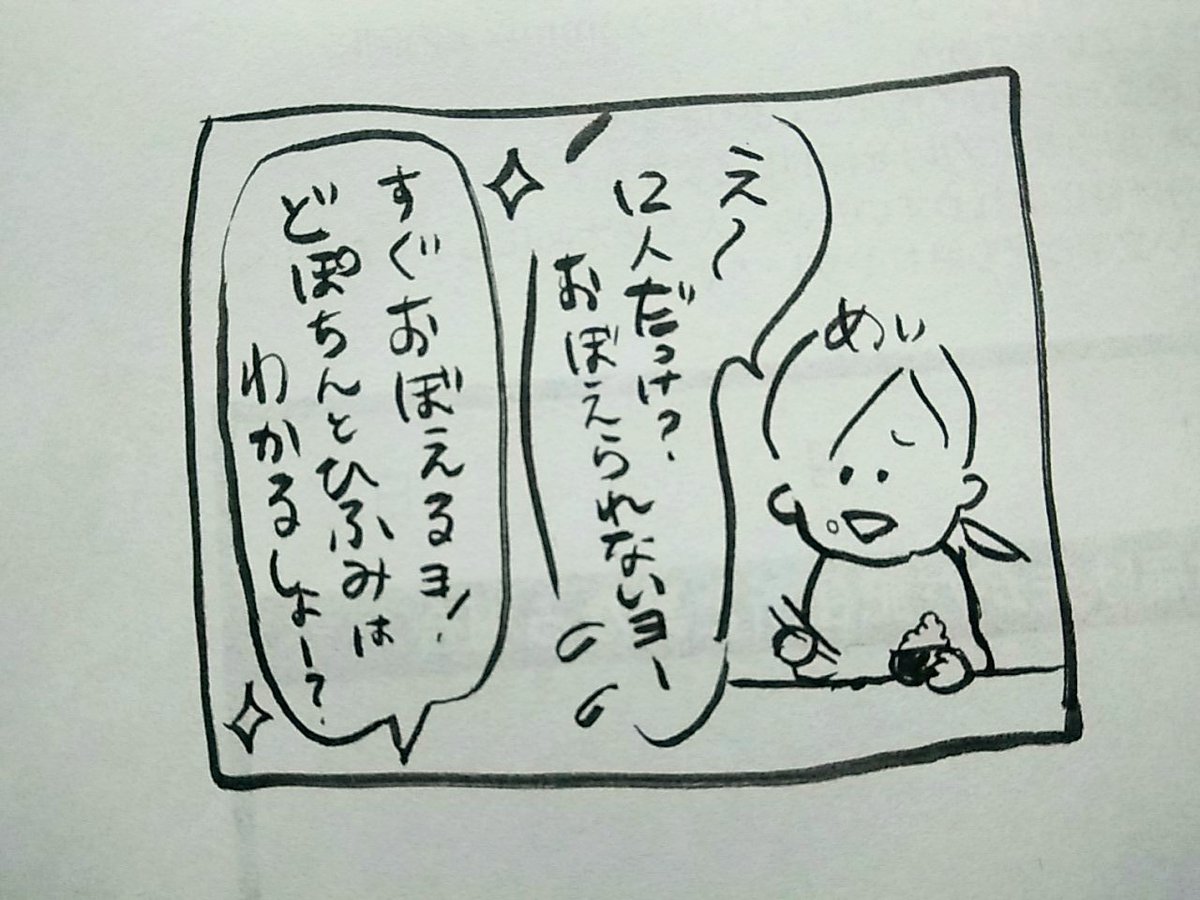 めい
え〜
12人だっけ?
おぼえられないヨー
すぐおぼえるヨ!
どぽちんとひふみは
わかるしょー?